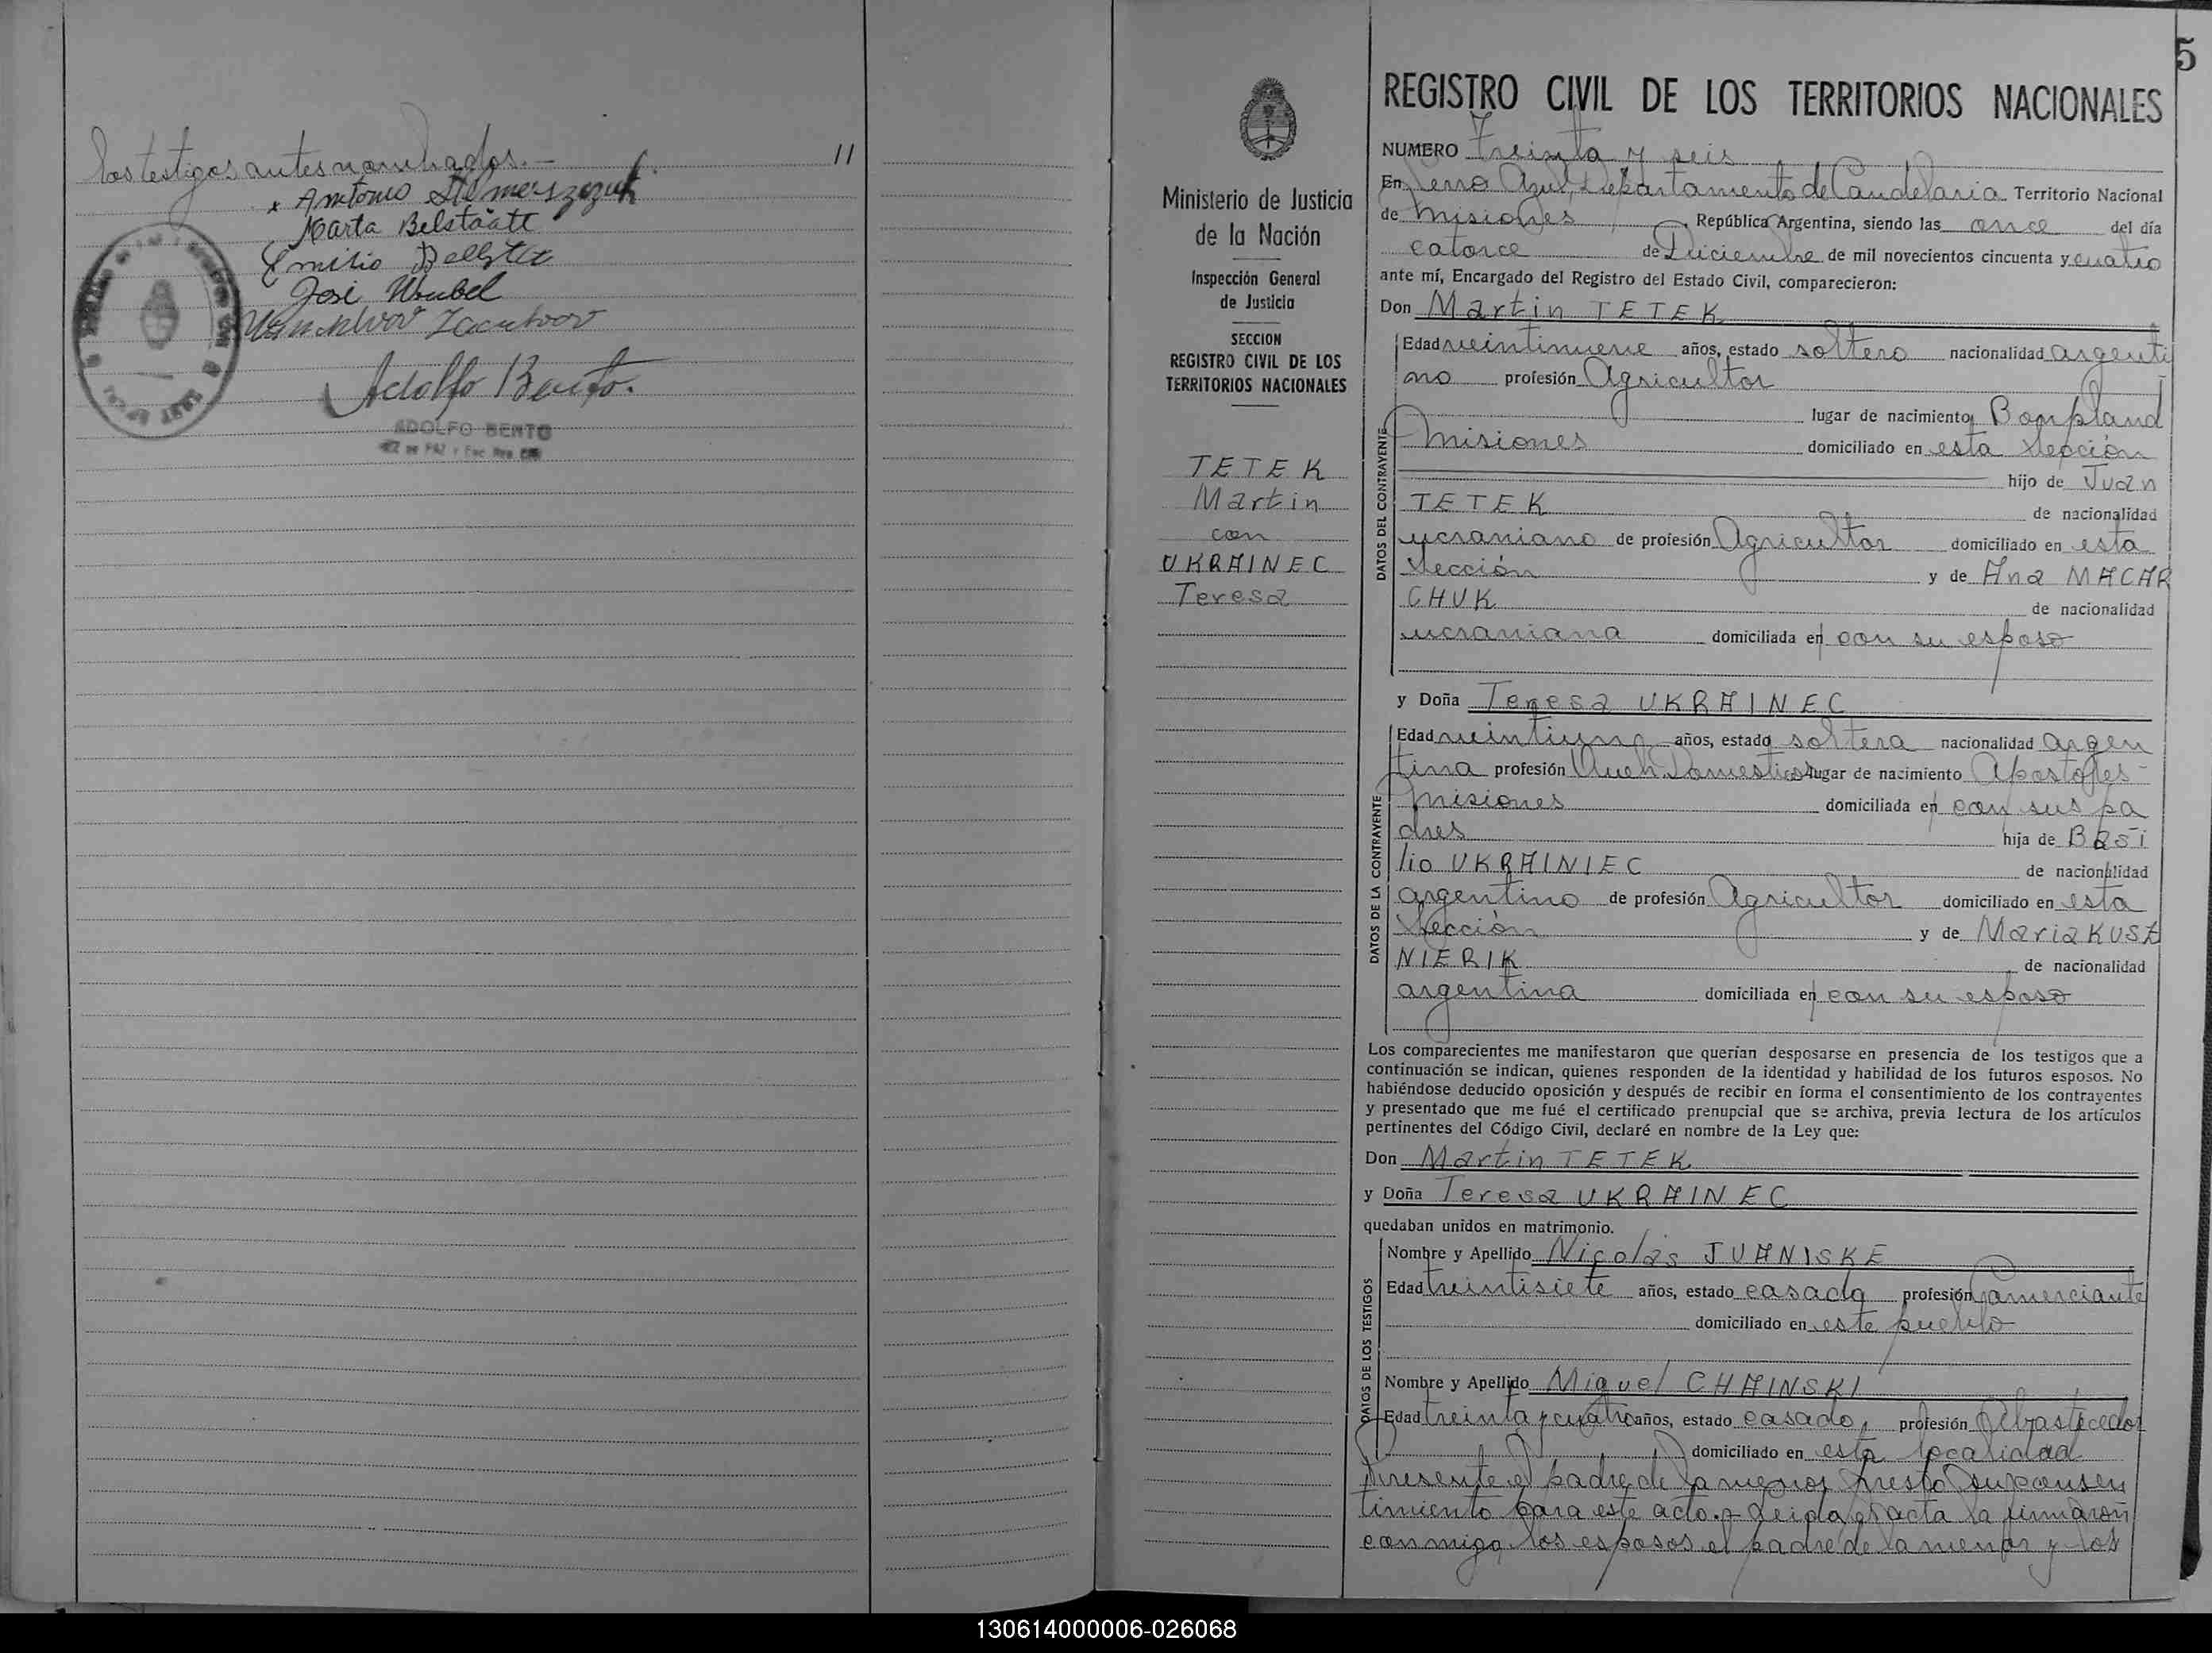 los testigos antes nombrados.—
11
x Antonio
Marta Belstaatt
Emilio
José Wrubel
Adolfo Bento.
ADOLFO BENTO
5
Ministerio de Justicia
de la Nación
Inspección General
de Justicia
SECCION
REGISTRO CIVIL DE LOS
TERRITORIOS NACIONALES
TETEK
Martin
con
UKRAINEC
Teresa
REGISTRO CIVIL DE LOS TERRITORIOS NACIONALES
NUMERO Treinta y seis
En Cerro Azul, Departamento de Candelaria Territorio Nacional
de Misiones, República Argentina, siendo las once del día
catorce de Diciembre de mil novecientos cincuenta y cuatro
ante mí, Encargado del Registro del Estado Civil, comparecieron:
Don Martin TETEK
DATOS DEL CONTRAYENTE
Edad veintinueve años, estado soltero nacionalidad argenti
no profesión Agricultor
lugar de nacimiento Bonpland
Misiones domiciliado en esta Sección
hijo de Juan
TETEK de nacionalidad
ucraniano de profesión Agricultor domiciliado en esta
Sección y de Ana MACAR
CHUK de nacionalidad
ucraniana domiciliada en con su esposo
y Doña Teresa UKRAINEC
DATOS DE LA CONTRAYENTE
Edad veintiuno años, estado soltera nacionalidad argen
tina profesión Queh. Domesticos lugar de nacimiento Apostoles-
Misiones domiciliada en con sus pa
dres hija de Basi
lio UKRAINIEC de nacionalidad
argentino de profesión Agricultor domiciliado en esta
Sección y de Maria KUSZ
NIERIK de nacionalidad
argentina domiciliada en con su esposo
Los comparecientes me manifestaron que querían desposarse en presencia de los testigos que a
continuación se indican, quienes responden de la identidad y habilidad de los futuros esposos. No
habiéndose deducido oposición y después de recibir en forma el consentimiento de los contrayentes
y presentado que me fué el certificado prenupcial que se archiva, previa lectura de los artículos
pertinentes del Código Civil, declaré en nombre de la Ley que:
Don Martin TETEK
y Doña Teresa UKRAINEC
quedaban unidos en matrimonio.
DATOS DE LOS TESTIGOS
Nombre y Apellido Nicolás JUANISKE
Edad treintisiete años, estado casado profesión Comerciante
domiciliado en este pueblo
Nombre y Apellido Miguel CHAINSKI
Edad treinta y cuatro años, estado casado, profesión Abastecedor
domiciliado en esta localidad
Presente el padre de la menor prestó su consen
timiento para este acto.- Leida el acta la firmaron
conmigo, los esposos el padre de la menor y los
130614000006-026068